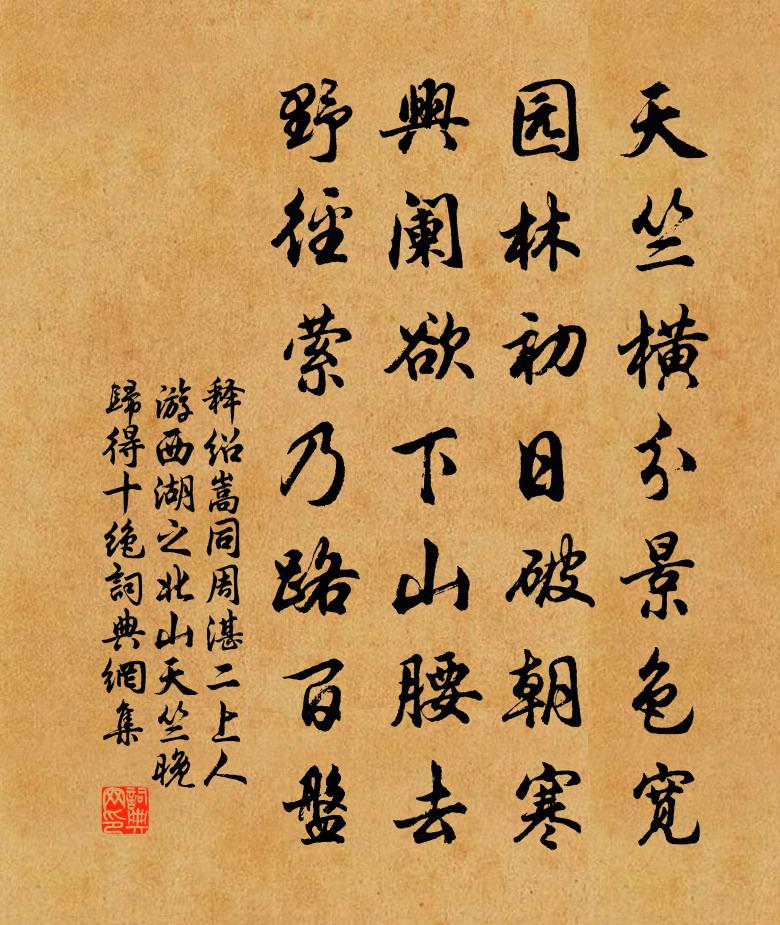 天竺横分景色寛
园林初日破朝寒
興阑欲下山腰去
野径萦乃路百盤
释绍嵩同周湛二上人
游西湖之北山天竺晚
歸得十绝詞典網集
詞典網印